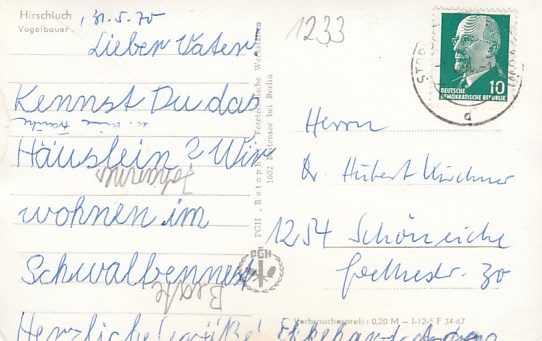 Hirschluch
Vogelbauer
31.5.70
1233
Lieber Vater
Kennst Du das
Häuslein? Wir
wohnen im
Schwalbennest
Beate
Herzliche Grüße! Ekkehard
Herrn
Dr. Hubert Kirchner
1254 Schöneiche
Goethestr. 30
DEUTSCHE
DEMOKRATISCHE REPUBLIK
10
PGH „Rotophot"
1602 bei Berlin
PGH
Verbraucherpreis: 0,20 M — I-12-5 F 34-67